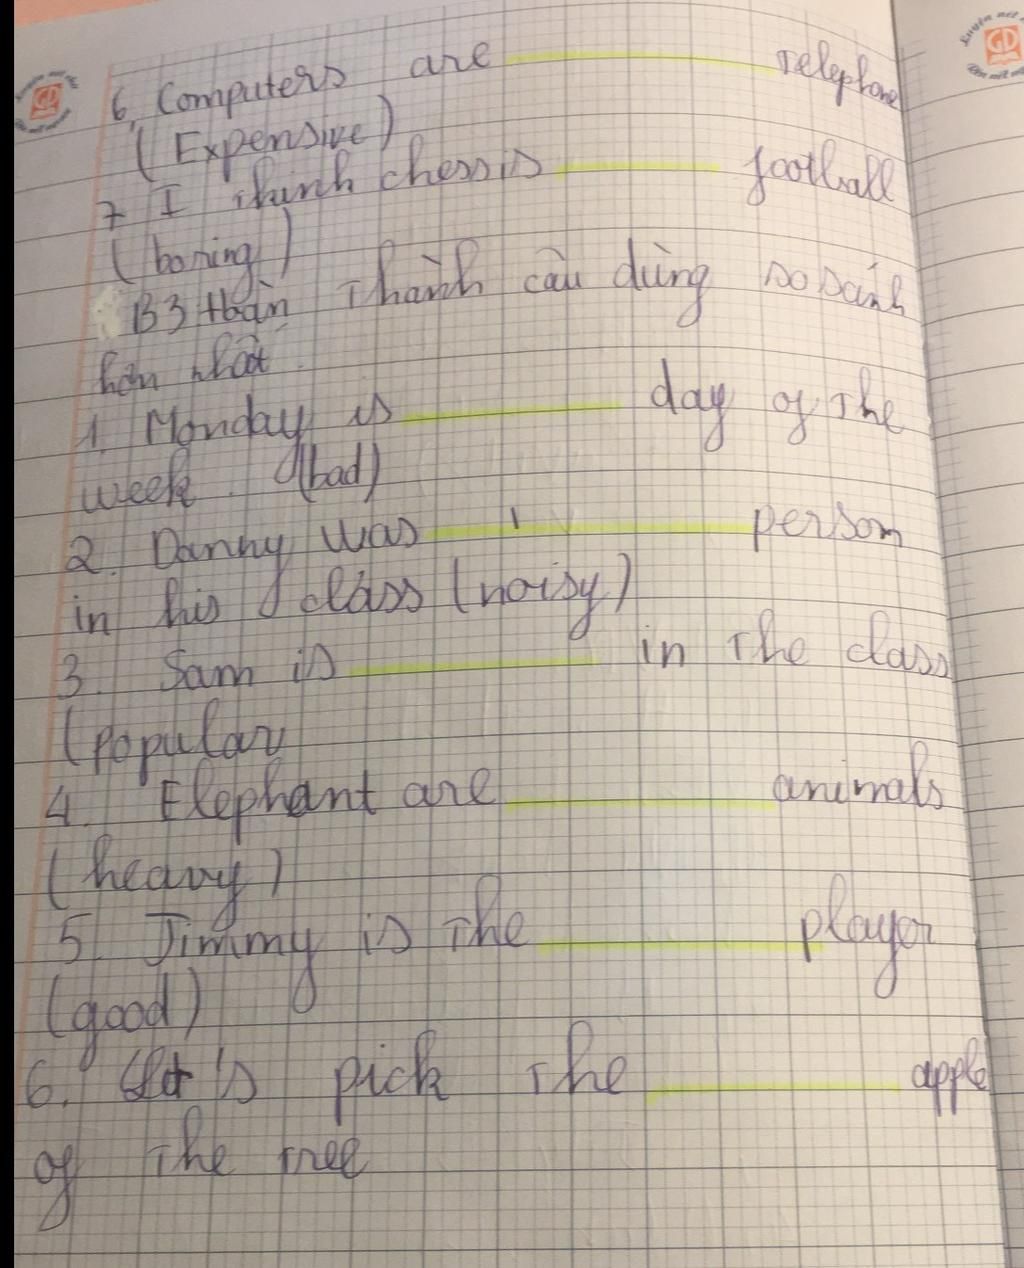 6. Computers are telephone
(Expensive)
7 I think chess is football
(boring)
B3 Hoàn thành câu dùng so sánh
hơn nhất.
1. Monday is day of the
week. (bad)
2. Danny was person
in his class (noisy)
3. Sam is in the class
(popular
4. Elephant are animals
(heavy)
5. Jimmy is the player
(good)
6. Let's pick the apple
of the tree
GD
GD